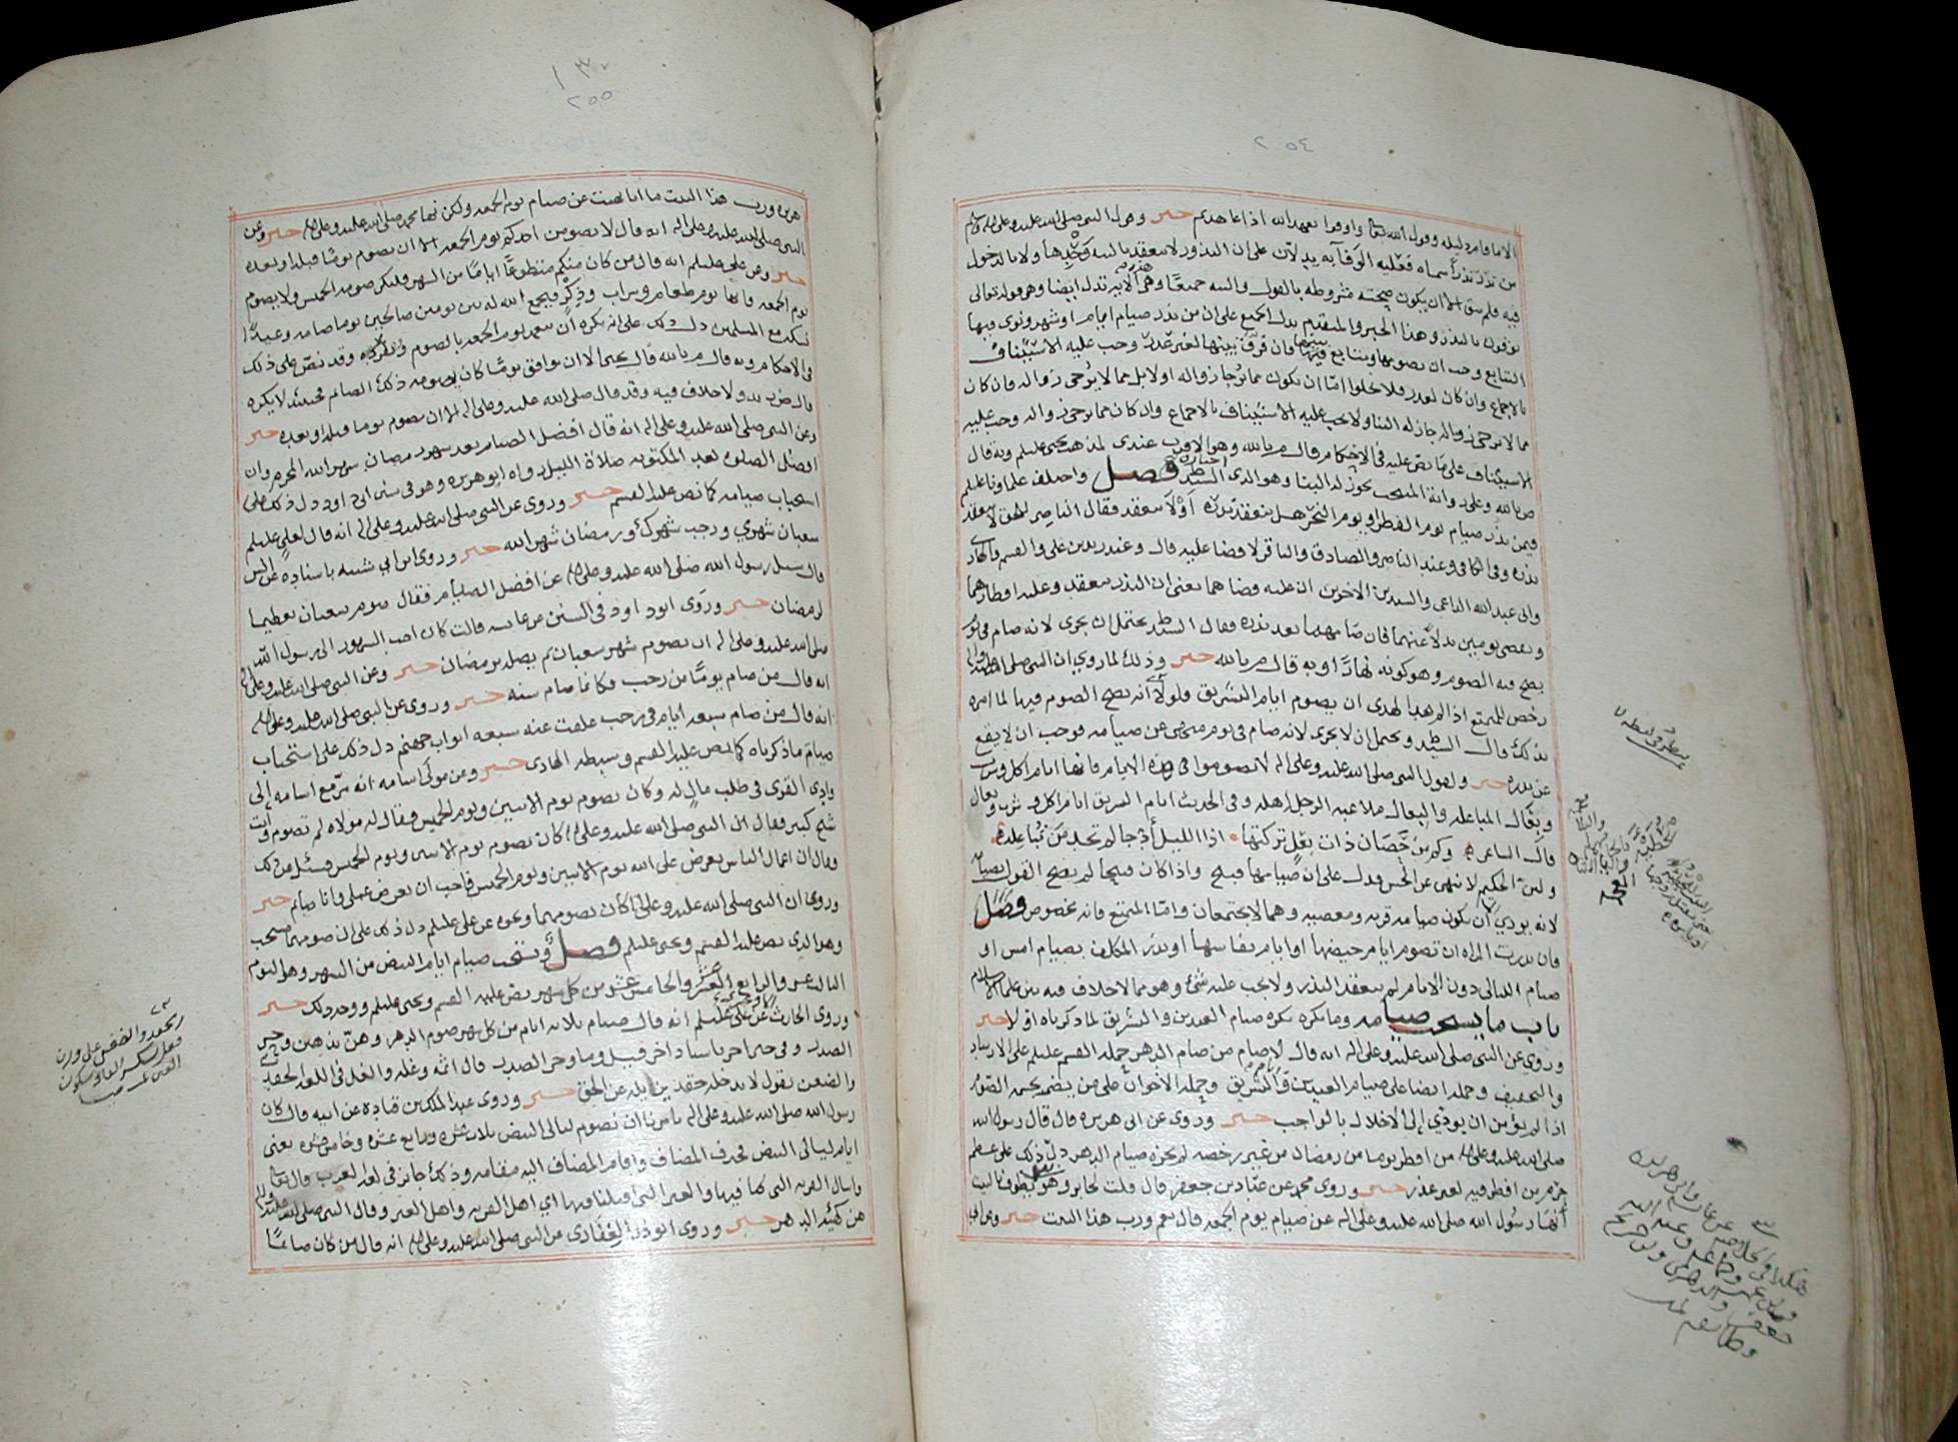 ٢٥٤
الا ما قام دليله وقول الله تعالى واوفوا بعهد الله اذا عاهدتم خبر وقول النبي صلى الله عليه وعلى اله وسلم
من نذر نذراً سماه فعليه الوفآ به يدلان على ان النذور لا ينعقد بالنيه وحدها ولا بالدخول
فيه فلم يبق الا ان يكون صحته مشروطه بالقول والنيه جميعًا وهي الايه تدل ايضا وهو قوله تعالى
يوفون بالنذر وهذا الخبر والمتقدم يدل الجميع على ان من نذر صيام ايام او شهر ونوى فيها
التتابع وجب ان يصومها ويتابع فيها فان فرق بينها لغير عذر وجب عليه الاستيناف
بالاجماع وان كان لعذر فلا يخلوا امّا ان يكون مما يُرجا زواله او لا بل مما لا يُرجى زواله فان كان
مما لا يرجى زواله جاز له البنا ولا يجب عليه الاستيناف بالاجماع وان كان مما يرجى زواله وجب عليه
الاستيناف على ما نص عليه في الاحكام قال م بالله وهو الاقرب عندي لمذهب يحيى عليلم وبه قال
ص بالله وعلى رواية المنتخب يجوز له البنا وهو الذي اختاره السيد ط فصل واختلف علماونا عليلم
فيمن نذر صيام يوم الفطر او يوم النحر هل ينعقد نذره أوْ لا ينعقد فقال الناصر للحق لا ينعقد
نذره وفي الكافي وعند الناصر والصادق والباقر لا قضا عليه قال وعند زيد بن على والقسم والهادي
وابي عبد الله الداعي والسيدين الاخرين ان عليه قضا هما يعني ان النذر ينعقد وعليه افطارهما
ويقضي يومين بدلاً عنهما فان صامهما بعد نذره فقال السيد ط يحتمل ان يجزي لانه صام في يوم
يصح فيه الصوم وهو كونه نهارًا وبه قال م بالله خبر وذلك لما روي ان النبي صلى الله عليه واله
رخص للمتمتع اذا لم يجد الهدى ان يصوم ايام التشريق فلولا انه يصح الصوم فيها لما امره
بذلك قال السيد ط ويحتمل ان لا يجزي لانه صام في يوم منهي عن صيامه فوجب ان لا يقع
عن نذره خبر ولقول النبي صلى الله عليه وعلى اله لا تصوموا في هذه الايام فانها ايام اكل وشرب
وبِعَال المباعله والبعال ملاعبه الرجل اهله وفي الحديث ايام التشريق ايام اكل وشرب وبعال
قال الشاعر وكم من حَصَان ذات بعل تركتها اذا الليل أدجا لم تجد من تُباعله
ولان الحكيم لا ينهى عن الحسن فدل على ان صيامها قبيح واذا كان قبيحا لم يصح القول بصيامه
لانه يودي الى ان يكون صيامه قربه ومعصيه وهما لا يجتمعان وامّا المتمتع فانه مخصوص فصل
فان نذرت المراه ان تصوم ايام حيضها او ايام نفاسها او نذر المكلف بصيام امس او
صيام الليالي دون الايام لم ينعقد النذر ولا يجب عليه شئ وهو مما لا خلاف فيه بين علما الاسلام
باب ما يستحب صيامه وما يكره يكره صيام العيدين والتشريق لما ذكرناه اولا خبر
وروي عن النبي صلى الله عليه وعلى اله انه قال لا صام من صام الدهر حمله القسم عليلم على الارشاد
والتخفيف وحمله ايضا على صيام العيدين وايام التشريق وحمله الاخوان على من يضر بجسمه الصوم
اذا لم يؤمن ان يودّي إلى الاخلال بالواجب خبر وروى عن ابي هريره قال قال رسول الله
صلى الله عليه وعلى اله من افطر يوما من رمضان من غير رخصه لم يجزه صيام الدهر دلّ ذلك على عظم
جرم من افطر فيه لغير عذر خبر وروى محمد عن عباد بن جعفر قال قلت لجابر وهو يطوف بالبيت
أنها رسُول الله صلى الله عليه وعلى اله عن صيام يوم الجمعه قال نعم ورب هذا البيت خبر وعن ابي
٢٥٥
هريره ورب هذا البيت ما انا نهيت عن صيام يوم الجمعه ولكن نها محمد صلى الله عليه وعلى اله خبر وعن
النبي صلى الله عليه وعلى اله انه قال لا يصومن احدكم يوم الجمعه الا ان يصوم يومًا قبله او بعده
خبر وعن على عليلم انه قال من كان منكم متطوعًا ايامًا من الشهر فليكن صومه الخميس ولا يصوم
يوم الجمعه فانها يوم طعام وشراب وذكر فيجمع الله له بين يومين صالحين يوما صامه وعيدًا
نسكه مع المسلمين دل ذلك على انه يكره ان يتعمد يوم الجمعه بالصوم وتفرّده وقد نصّ على ذلك
في الاحكام وبه قال م بالله قال يحيى الا ان يوافق يومًا كان يصومه ذلك الصائم فحينئذ لا يكره
وعن النبي صلى الله عليه وعلى اله انه قال افضل الصيام بعد شهر رمضان شهر الله المحرم وان
افضل الصلوه بعد المكتوبه صلاة الليل رواه ابو هريره وهو في سنن ابي داود دل ذلك على
استحباب صيامه كما نص عليه القسم خبر وروي عن النبي صلى الله عليه وعلى اله انه قال لعلي عليلم
شعبان شهري ورجب شهرك ورمضان شهر الله خبر وروى ابن ابي شيبه باسناده عن انس
قال سيل رسول الله صلى الله عليه وعلى اله عن افضل الصيام فقال صوم شعبان تعظيما
لرمضان خبر وروى ابو داود في السنن عن عايشه قالت كان احب الشهور الى رسول الله
صلى الله عليه وعلى اله ان يصوم شهر شعبان ثم يصله برمضان خبر وعن النبي صلى الله عليه وعلى اله
انه قال من صام يومًا من رجب فكانما صام سنه خبر وروى عن النبي صلى الله عليه وعلى اله
انه قال من صام سبعه ايام في رجب غلقت عنه سبعه ابواب جهنم دل ذلك على استحباب
صيام ما ذكرناه كما نص عليه القسم وسبطه الهادى خبر وعن مولى اسامه انه مع اسامه إلى
وادي القرى في طلب مال له وكان يصوم يوم الاثنين ويوم الخميس فقال له مولاه لم تصوم وأنت
شيخ كبير فقال ان النبي صلى الله عليه وعلى اله كان يصوم يوم الاثنين ويوم الخميس فسئل عن ذلك
وقال ان اعمال الناس تعرض على الله يوم الاثنين ويوم الخميس فاحب ان يعرض عملي وانا صايم خبر
وروى ان النبي صلى الله عليه وعلى اله كان يصومهما ونحوه عن على عليلم دل ذلك على ان صومهما مستحب
وهو الذي نص عليه القسم ويحيى عليلم فصل ويستحب صيام ايام البيض من الشهر وهو اليوم
الثالث عشر والرابع العشر والخامس عشر من كل شهر نص عليه القسم ويحيى عليلم ووجه ذلك خبر
وروى الحارث عن على عليلم انه قال صيام ثلاثه ايام من كل شهر صوم الدهر وهنّ يذهبن وحر
الصدر وفي خبر اخر باسناد اخر قيل وما وحر الصدر قال اثمه وغله والغل في اللغه الحقد
والضغن نقول لا يدخله حقد يزيله عن الحق خبر وروى عبد الملك بن قتاده عن ابيه قال كان
رسول الله صلى الله عليه وعلى اله يامرنا ان نصوم ليالي البيض ثلاث عشره ورابع عشره وخامس عشره يعني
ايام ليالي البيض فحذف المضاف واقام المضاف اليه مقامه وذلك جائز في لغه العرب قال تعالى
واسال القريه التي كنا فيها والعير التي اقبلنا فيها اي اهل القريه واهل العير وقال النبي صلى الله عليه واله
هن كهيئه الدهر خبر وروى ابو ذر الغفاري عن النبي صلى الله عليه وعلى اله انه قال من كان صائمًا